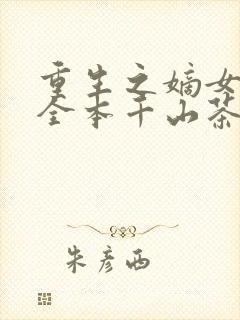 重生之嫡女
全本千山茶
朱彦西